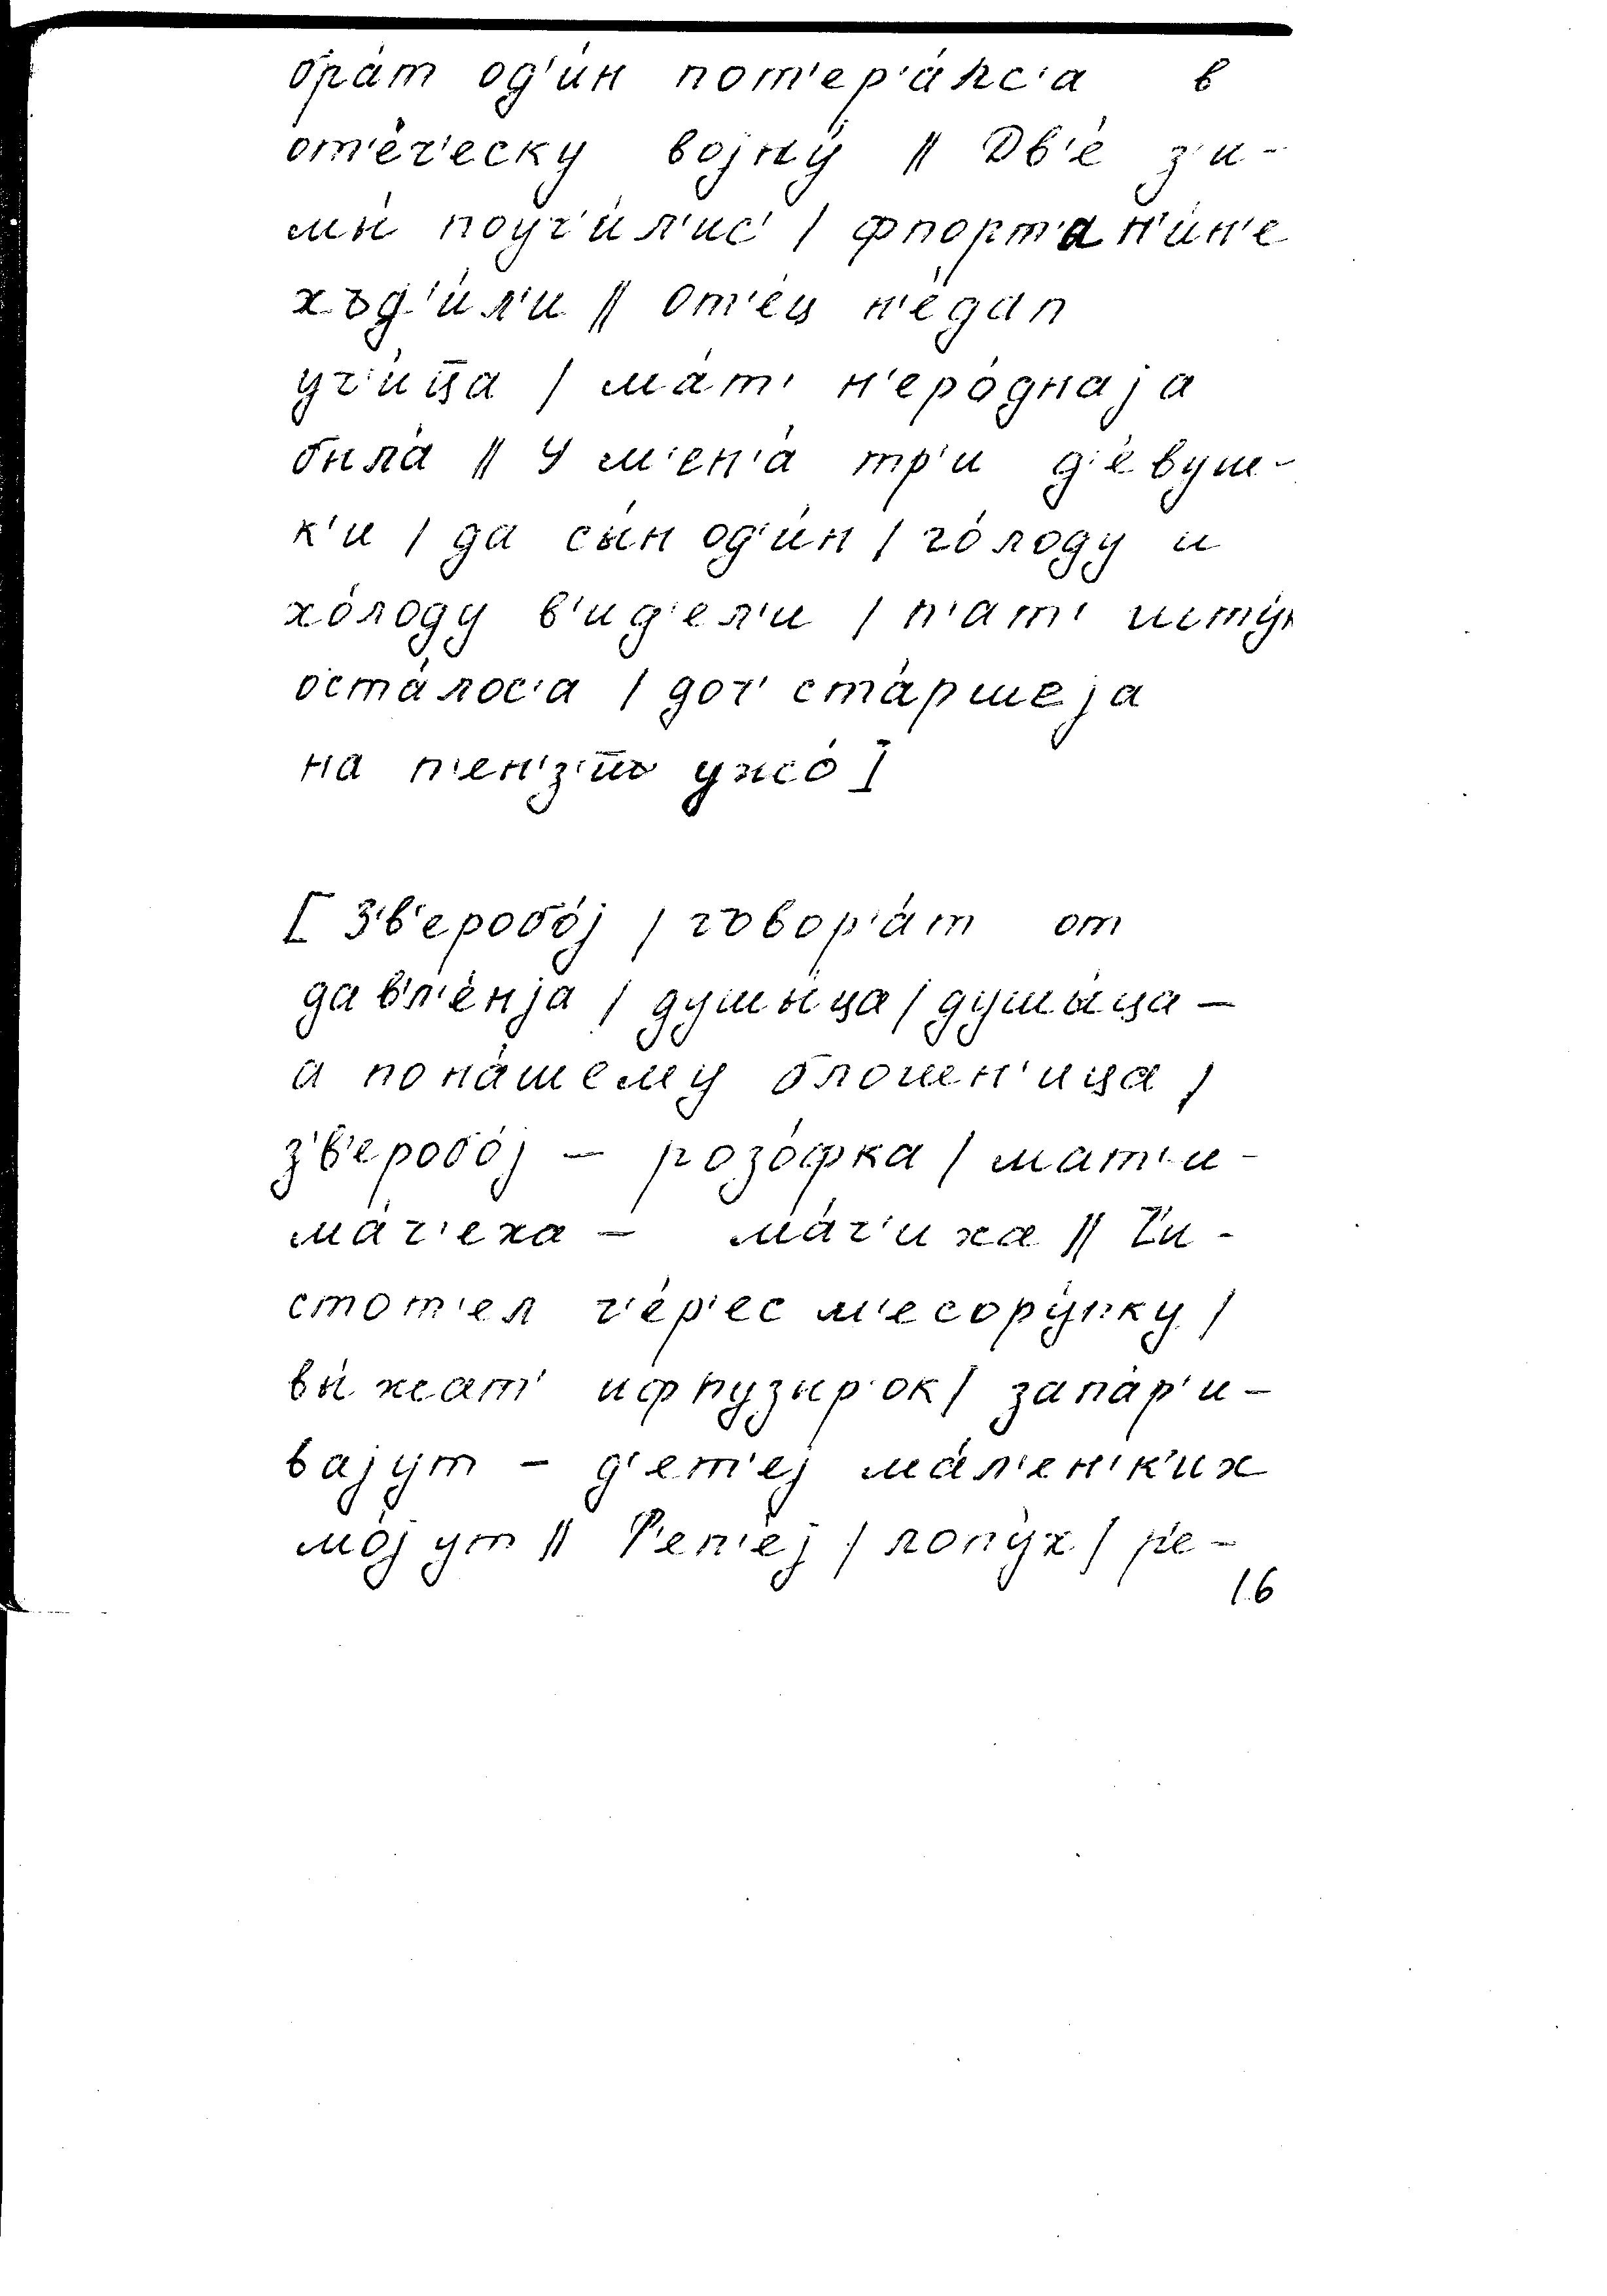 бра́т од'и́н пот'ер'а́лс'а в
от'е́ч'еску војну́ || Дв'е́ з'и-
мы́ поуч'и́л'ис' | фпорт'ан'и́н'е
хъд'и́л'и || От'е́ц н'е́дал
уч'и́ц̄а | ма́т' н'еро́днаја
была́ || У м'ен'а́ тр'и д'е́вуш-
к'и | да сы́н од'и́н | го́лоду и
хо́лоду в'ид'ел'и | п'ат' шту́к
оста́лос'а | доч' ста́ршеја
на п'ен'з'иъ ужо́]
[З'в'еробо́ј | говор'а́т от
давл'е́нја | душы́ца | душы́ца –
а пона́шему блошен'ица |
з'в'еробо́ј – розо́фка | мат'и-
ма́ч'еха – ма́ч'иха || Чи-
стот'ел ч'е́р'ес м'есору́пку |
вы́жат' ифпузыр'ок | запа́р'и-
вајут – д'ет'еј ма́л'ен'к'их
мо́јут || Р'еп'е́ј | лопу́х | р'е-
16